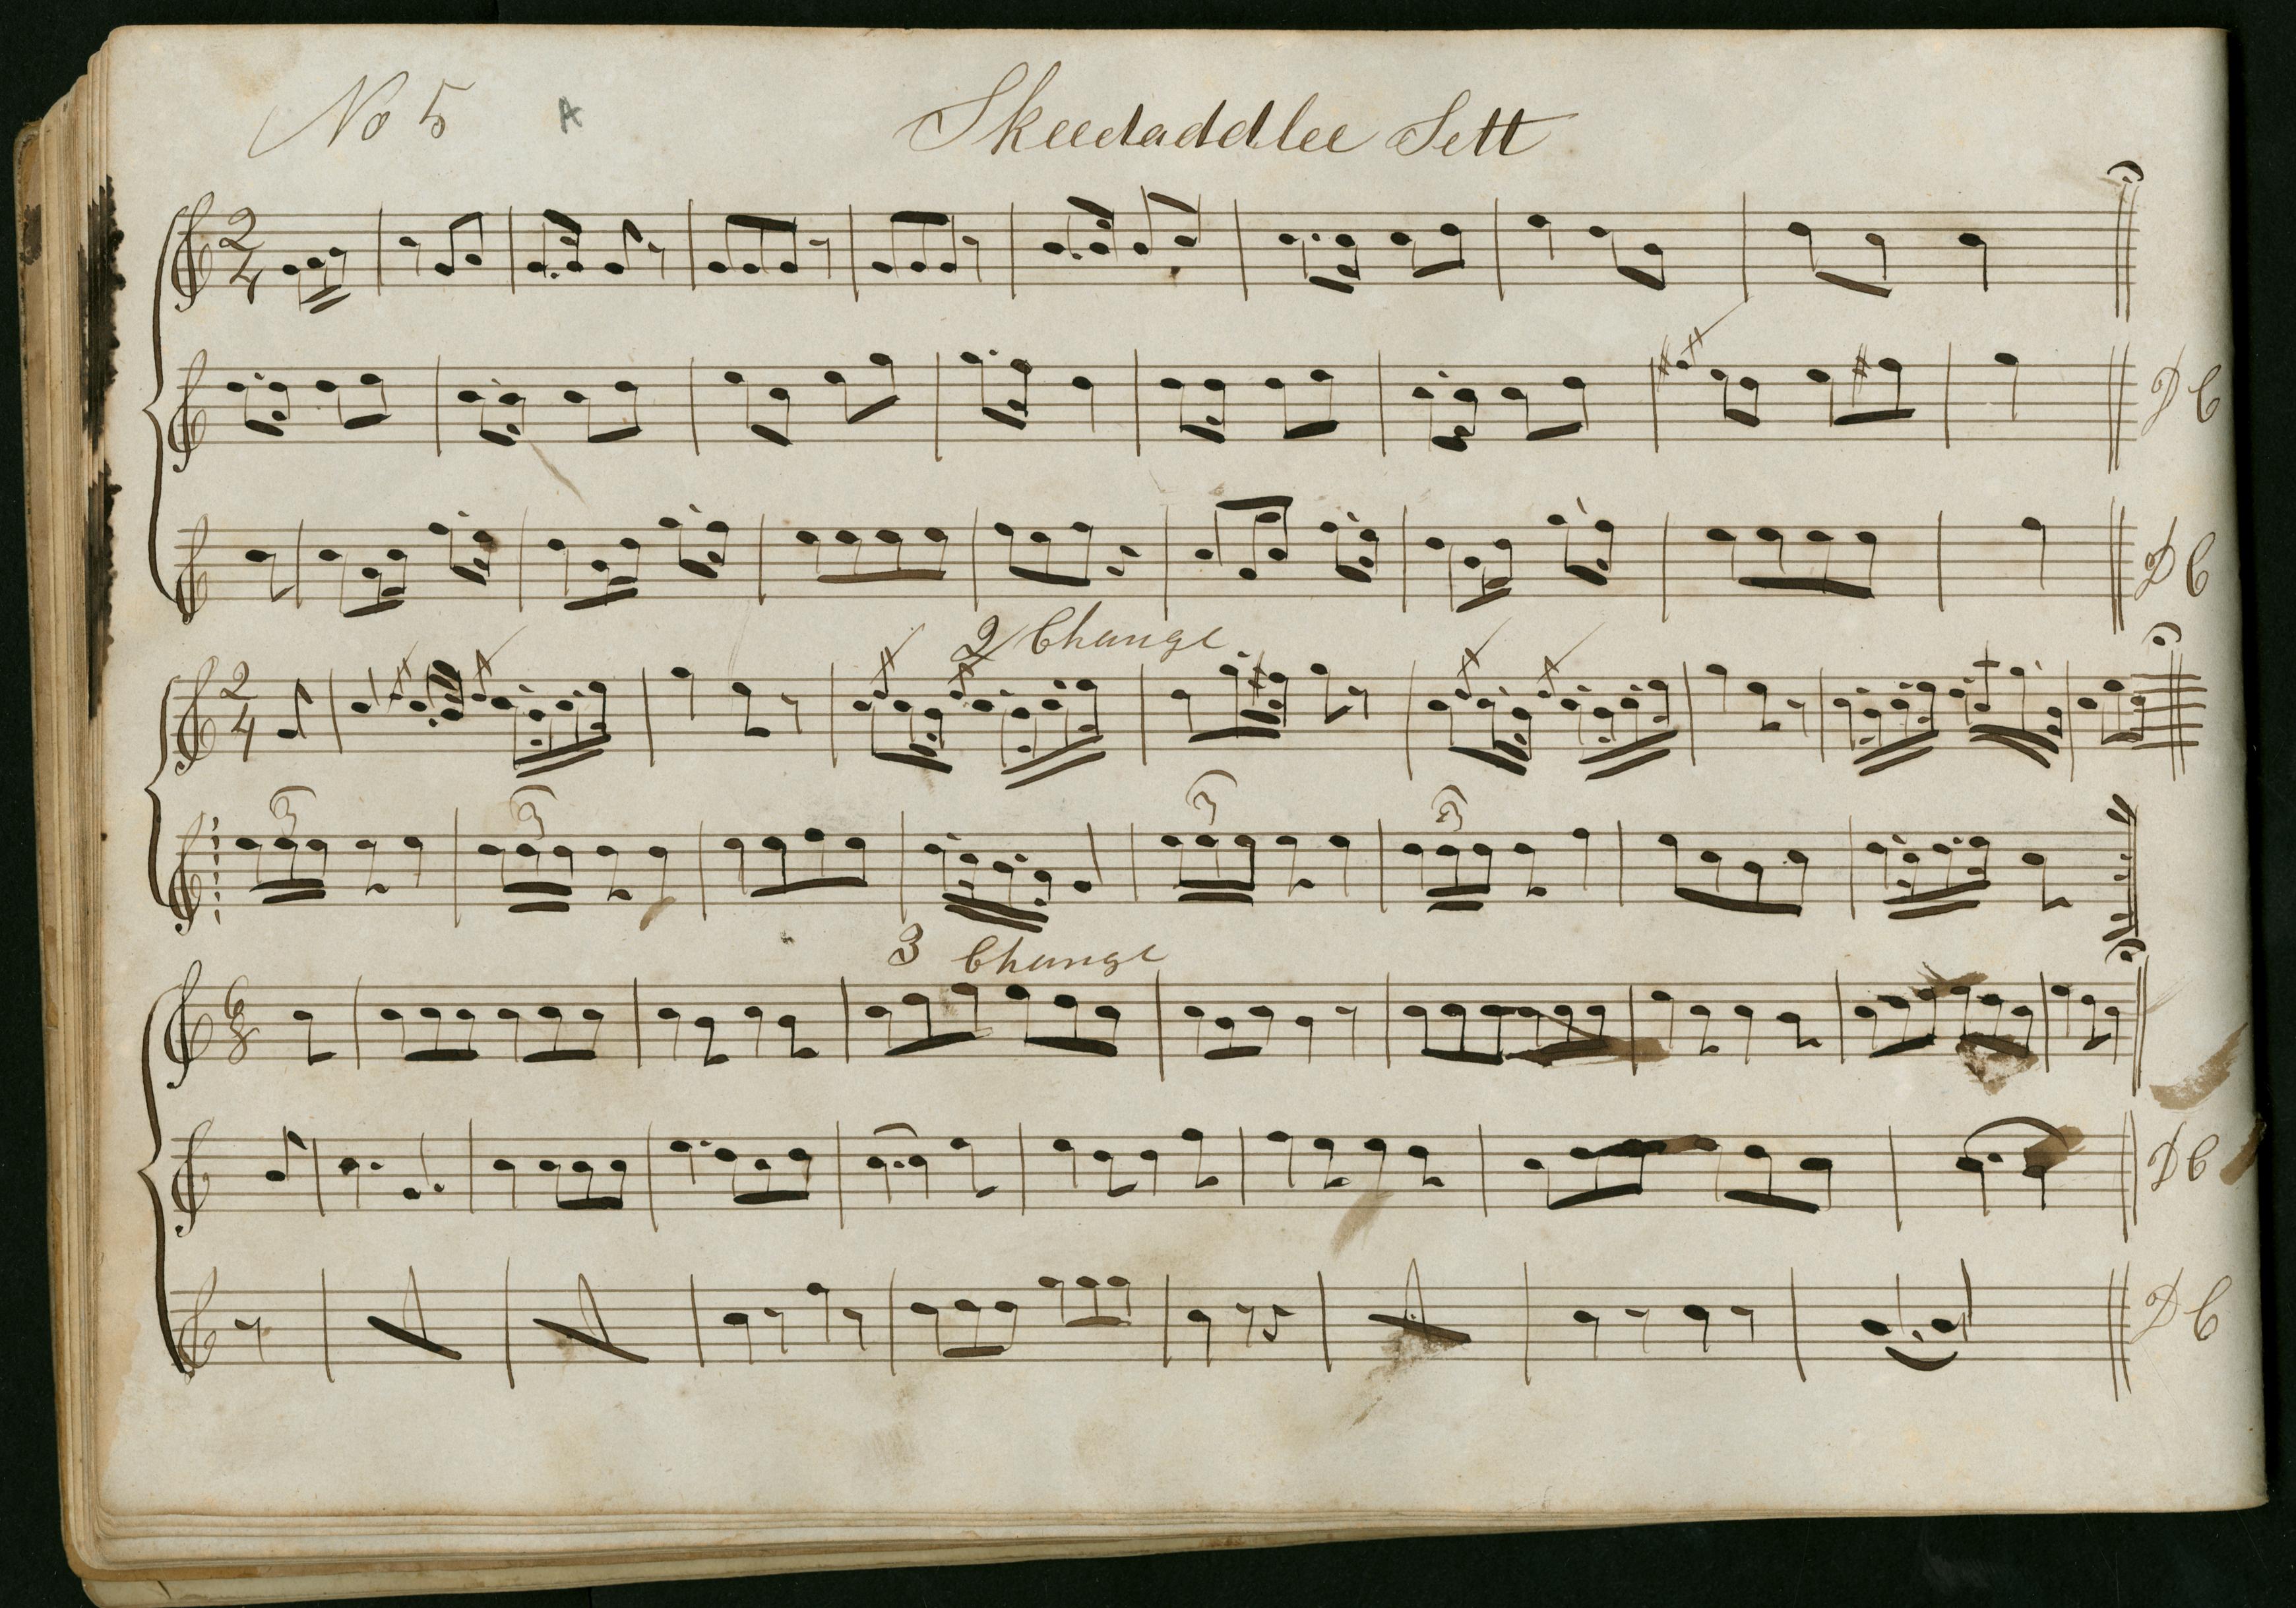 No 5 A Skeedaddlee Sett
2 4
D C
D C
2 Change
2 4
3 3 3 3
3 Change
6 8
D C
D C